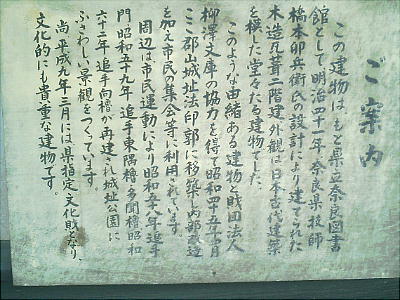 ご案内
この建物はもと県立奈良図書
館として明治四十一年、奈良県技師
橋本卯兵衛氏の設計により建てられた
木造瓦葺二階建、外観は日本古代建築
を模した堂々たる建物でした、
このような由緒ある建物を財団法人
柳澤文庫の協力を得て昭和四十五年
ここ郡山城址法印郭に移築し内部改造
を加え市民の集会等に利用されています。
周辺は市民運動により昭和五八年追手
門、昭和五十九年追手東隅櫓・多聞櫓、昭和
六十二年追手向櫓が再建され城址公園に
ふさわしい景観をつくっています。
尚平成九年三月には県指定文化財となり、
文化的にも貴重な建物です。